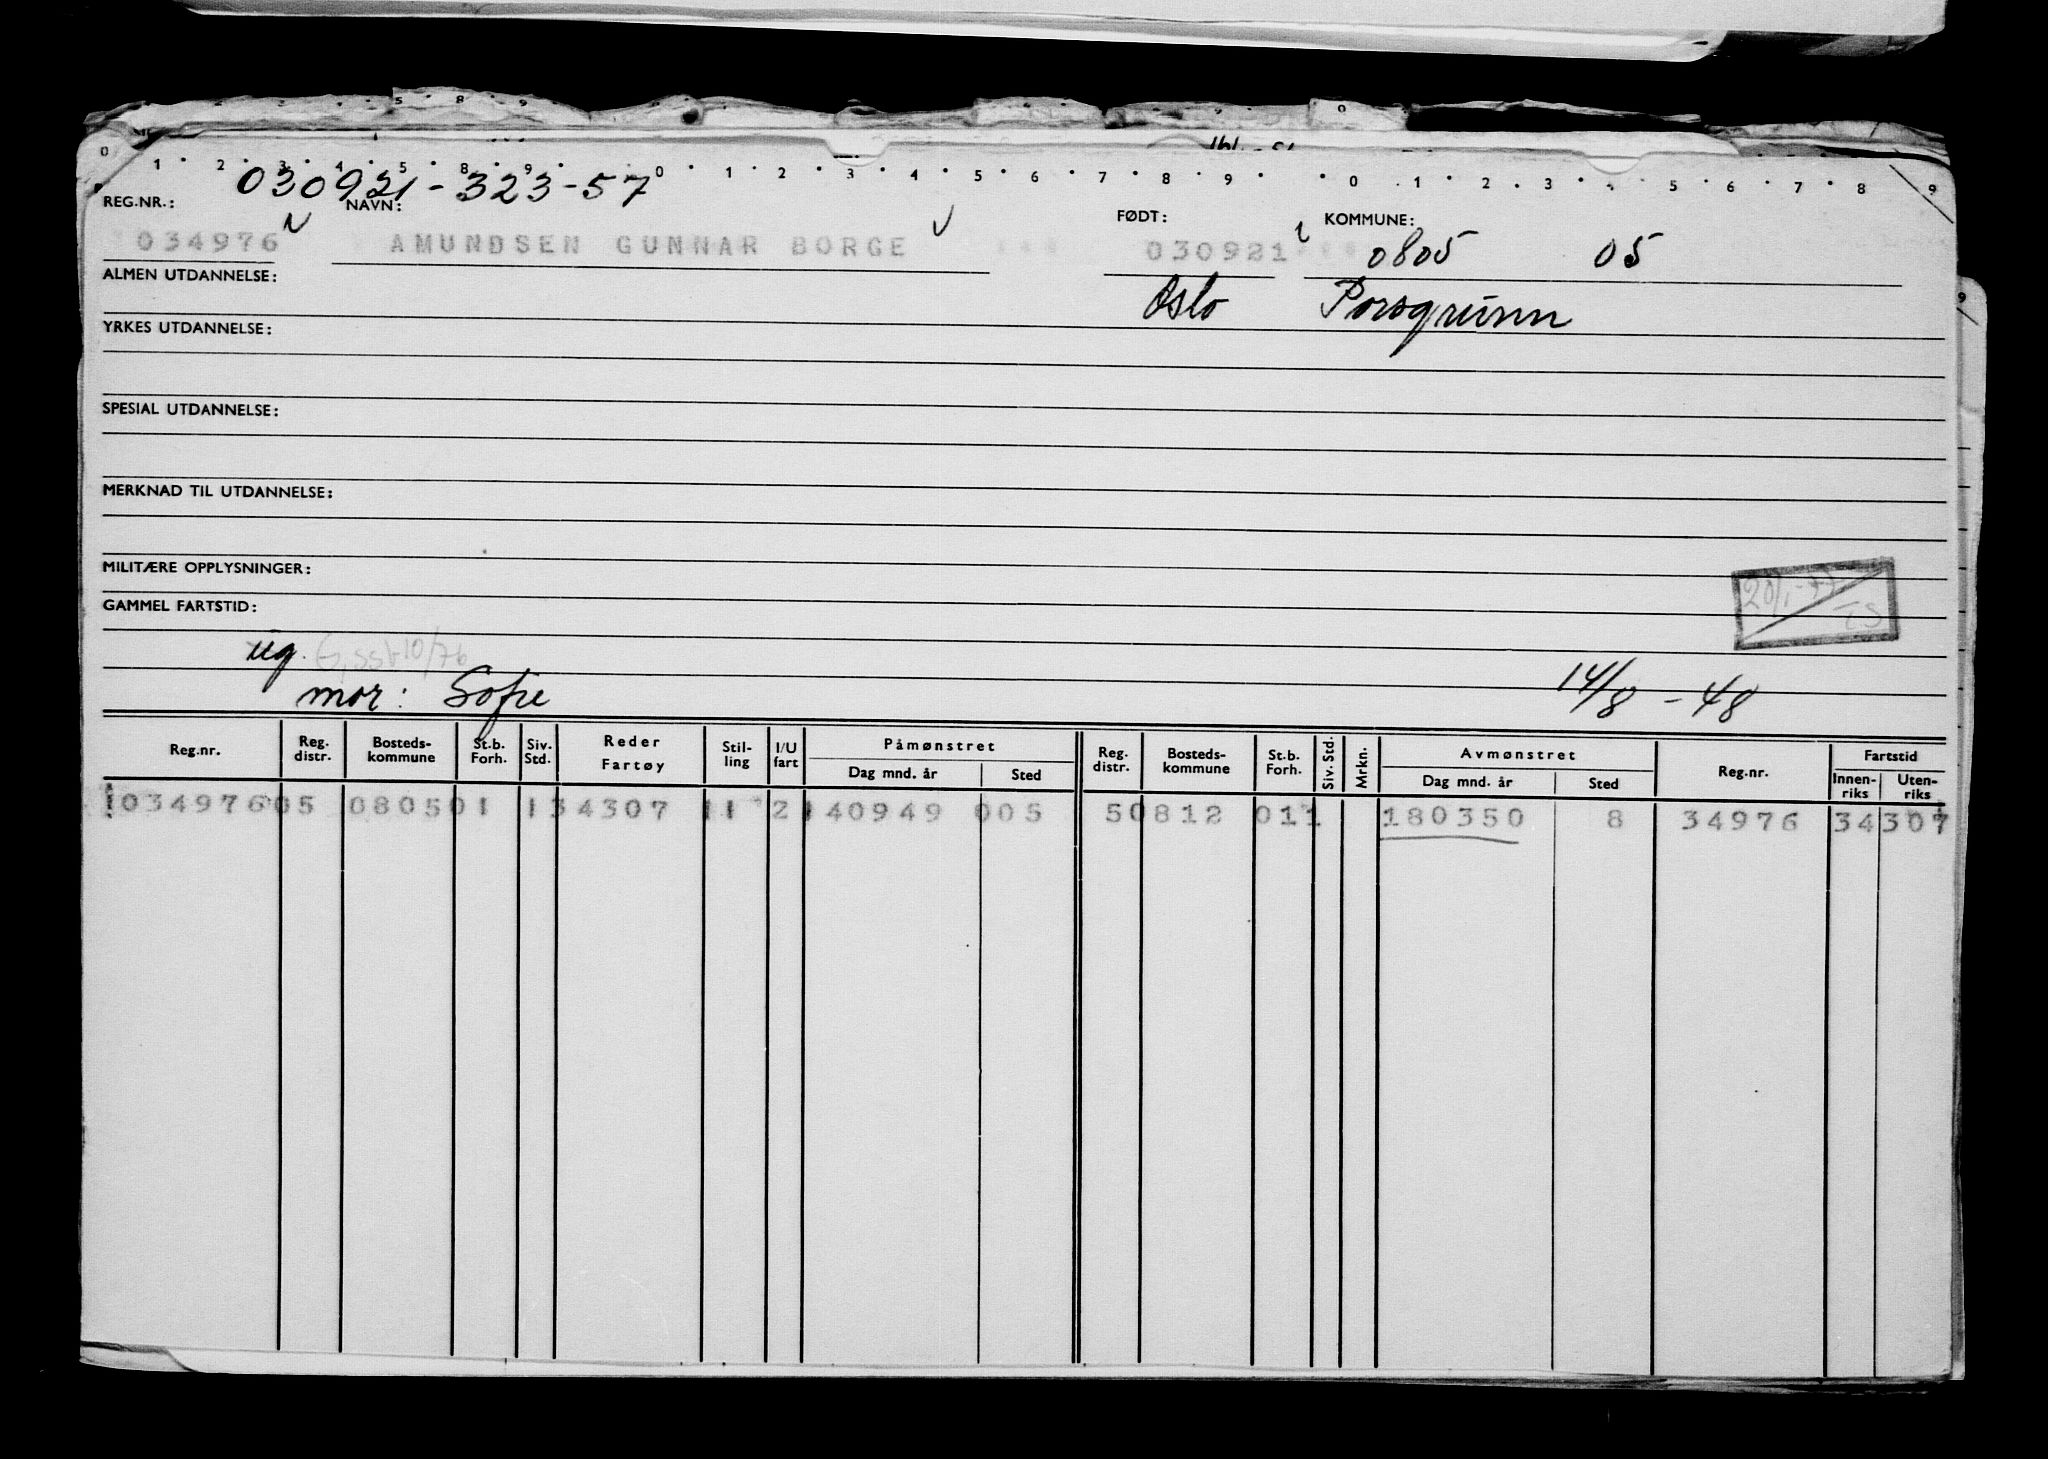 0 1 2 3 4 5 8 9 0 1 2 3 4 5 6 7 8 9 0 1 2 3 4 5 6 7 8 9
030921-323-57
REG.NR.: NAVN: FØDT: KOMMUNE:
034976 AMUNDSEN GUNNAR BORGE 030921 0805 05
ALMEN UTDANNELSE:
Oslo Porsgrunn
YRKES UTDANNELSE:
SPESIAL UTDANNELSE:
MERKNAD TIL UTDANNELSE:
MILITÆRE OPPLYSNINGER:
GAMMEL FARTSTID:
20/1-77
ug. 10/76
mor: Sofie 14/8-48
Reg.nr. Reg. distr. Bosteds-kommune St.b. Forh. Siv. Std. Reder Fartøy Stil-ling I/U fart Påmønstret Dag mnd. år Sted Reg. distr. Bosteds-kommune St.b. Forh. Siv. Std. Mrkn. Avmønstret Dag mnd. år Sted Reg.nr. Fartstid Innen-riks Uten-riks
103497605 080501 134307 11 2 140949 005 50812 011 180350 8 34976 34307